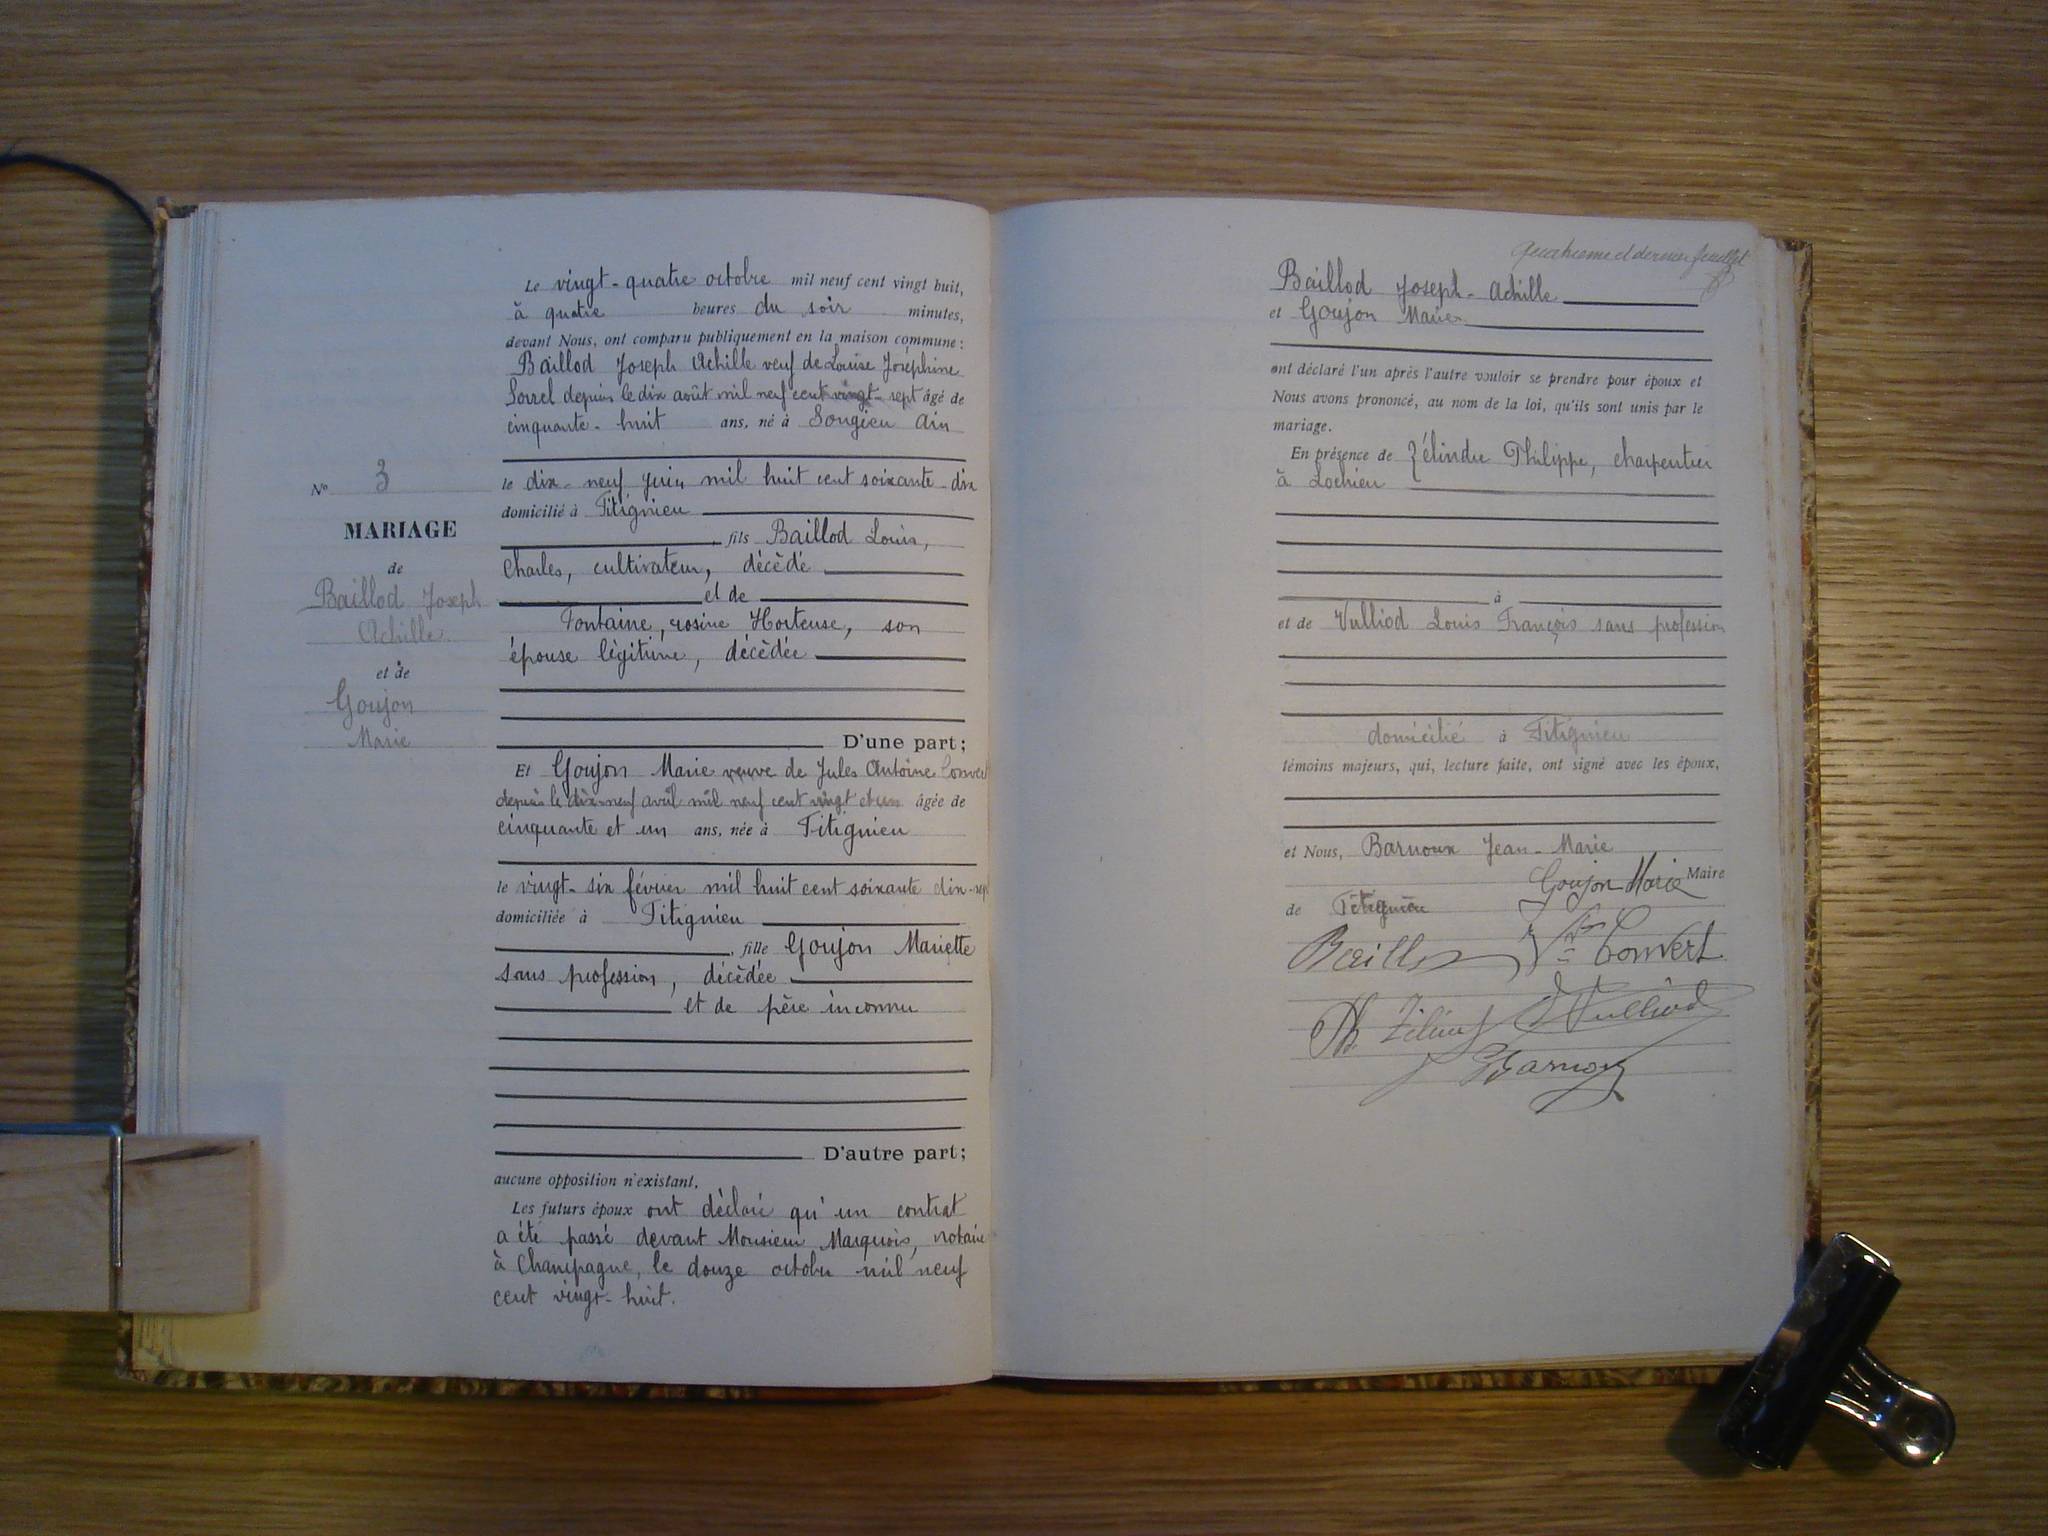 Nº 3
MARIAGE
de
Baillod Joseph
Achille
et de
Goujon
Marie
Le vingt-quatre octobre mil neuf cent vingt huit,
à quatre heures du soir minutes,
devant Nous, ont comparu publiquement en la maison commune :
Baillod Joseph Achille veuf de Louise Joséphine
Sorrel depuis le dix août mil neuf cent vingt-sept âgé de
cinquante-huit ans, né à Songieu Ain
le dix-neuf juin mil huit cent soixante-dix
domicilié à Fitignieu
, fils Baillod Louis,
Charles, cultivateur, décèdé
et de
Fontaine, rosine Hortense, son
épouse lègitime, décèdée
D'une part ;
Et Goujon Marie veuve de Jules Antoine Convert
depuis le dix-neuf avril mil neuf cent vingt et un âgée de
cinquante et un ans, née à Fitignieu
le vingt-six février mil huit cent soixante dix-sept
domiciliée à Fitignieu
, fille Goujon Mariette
sans profession, décèdée
et de père inconnu
D'autre part ;
aucune opposition n'existant.
Les futurs époux ont déclaré qu'un contrat
a été passé devant Monsieur Marquois, notaire
à Champagne, le douze octobre mil neuf
cent vingt-huit.
Quatrieme et dernier feuillet
Baillod Joseph-Achille
et Goujon Marie
ont déclaré l'un après l'autre vouloir se prendre pour époux et
Nous avons prononcé, au nom de la loi, qu'ils sont unis par le
mariage.
En présence de Zélindre Philippe, charpentier
à Lochieu
à
et de Vulliod Louis François sans profession
domicilié à Fitignieu
témoins majeurs, qui, lecture faite, ont signé avec les époux,
et Nous, Barnoux Jean-Marie
Goujon Marie Maire
de Fitignieu
Baillod Vve Convert
Ph Zélind Vulliod
Barnoux